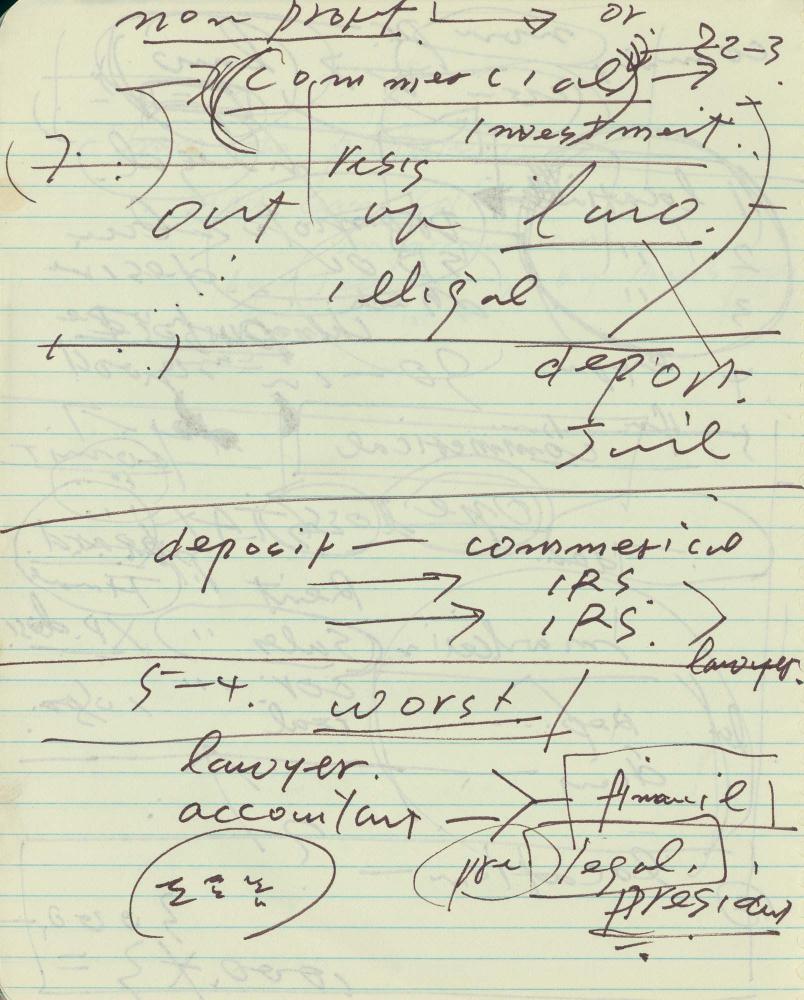 non profit. → or
(commercial) → 22-3
Investment.
(7. :) resig
out up law.
illigal
deport.
Juil
deposit — commerical
→ IRS.
→ IRS.
lawyer.
5-4. worst
lawyer.
accountant — finanicil
pre legal.